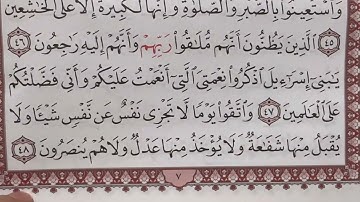 وَٱسْتَعِينُوا۟ بِٱلصَّبْرِ وَٱلصَّلَوٰةِ وَإِنَّهَا لَكَبِيرَةٌ إِلَّا عَلَى ٱلْخَٰشِعِينَ
﴿٤٥﴾ ٱلَّذِينَ يَظُنُّونَ أَنَّهُم مُّلَٰقُوا۟ رَبِّهِمْ وَأَنَّهُمْ إِلَيْهِ رَٰجِعُونَ ﴿٤٦﴾
يَٰبَنِىٓ إِسْرَٰٓءِيلَ ٱذْكُرُوا۟ نِعْمَتِىَ ٱلَّتِىٓ أَنْعَمْتُ عَلَيْكُمْ وَأَنِّى فَضَّلْتُكُمْ
عَلَى ٱلْعَٰلَمِينَ ﴿٤٧﴾ وَٱتَّقُوا۟ يَوْمًا لَّا تَجْزِى نَفْسٌ عَن نَّفْسٍ شَيْـًٔا وَلَا
يُقْبَلُ مِنْهَا شَفَٰعَةٌ وَلَا يُؤْخَذُ مِنْهَا عَدْلٌ وَلَا هُمْ يُنصَرُونَ ﴿٤٨﴾
٧